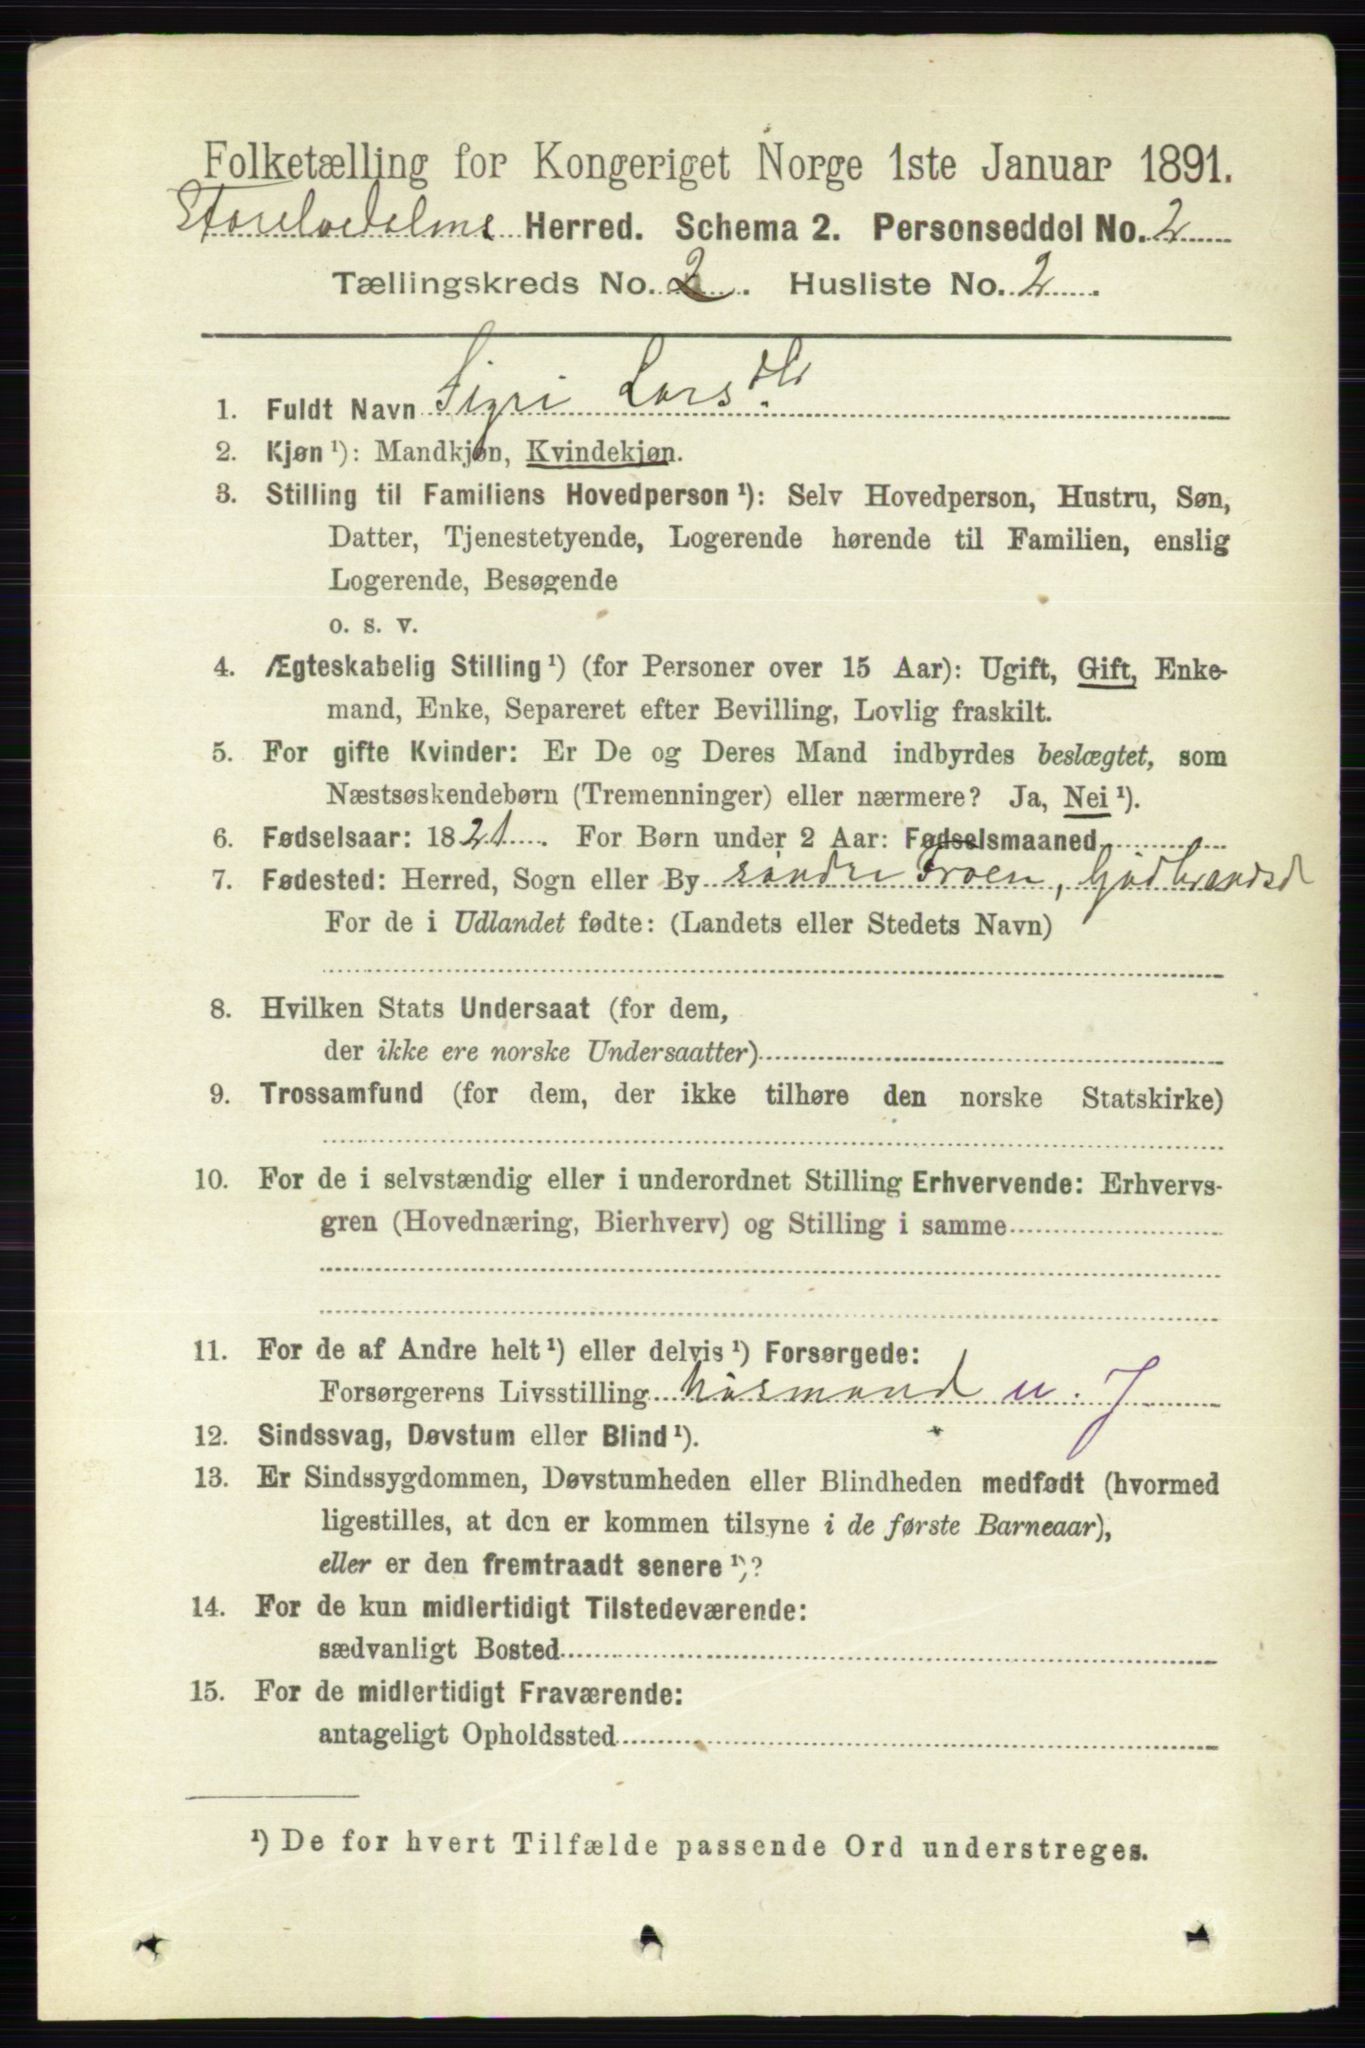 Folketælling for Kongeriget Norge 1ste Januar 1891.
Storelvedalens Herred. Schema 2. Personseddel No. 2
Tællingskreds No. 2. Husliste No. 2.
1. Fuldt Navn Sigri Larsdtr.
2. Kjøn ¹): Mandkjøn, Kvindekjøn.
3. Stilling til Familiens Hovedperson ¹): Selv Hovedperson, Hustru, Søn,
Datter, Tjenestetyende, Logerende hørende til Familien, enslig
Logerende, Besøgende
o. s. v.
4. Ægteskabelig Stilling ¹) (for Personer over 15 Aar): Ugift, Gift, Enke-
mand, Enke, Separeret efter Bevilling, Lovlig fraskilt.
5. For gifte Kvinder: Er De og Deres Mand indbyrdes beslægtet, som
Næstsøskendebørn (Tremenninger) eller nærmere? Ja, Nei ¹).
6. Fødselsaar: 1821. For Børn under 2 Aar: Fødselsmaaned
7. Fødested: Herred, Sogn eller By søndre Froen, Gudbrandsd
For de i Udlandet fødte: (Landets eller Stedets Navn)
8. Hvilken Stats Undersaat (for dem,
der ikke ere norske Undersaatter)
9. Trossamfund (for dem, der ikke tilhøre den norske Statskirke)
10. For de i selvstændig eller i underordnet Stilling Erhvervende: Erhvervs-
gren (Hovednæring, Bierhverv) og Stilling i samme
11. For de af Andre helt ¹) eller delvis ¹) Forsørgede:
Forsørgerens Livsstilling Husmand u. J
12. Sindssvag, Døvstum eller Blind ¹).
13. Er Sindssygdommen, Døvstumheden eller Blindheden medfødt (hvormed
ligestilles, at den er kommen tilsyne i de første Barneaar),
eller er den fremtraadt senere ¹)?
14. For de kun midlertidigt Tilstedeværende:
sædvanligt Bosted
15. For de midlertidigt Fraværende:
antageligt Opholdssted
¹) De for hvert Tilfælde passende Ord understreges.